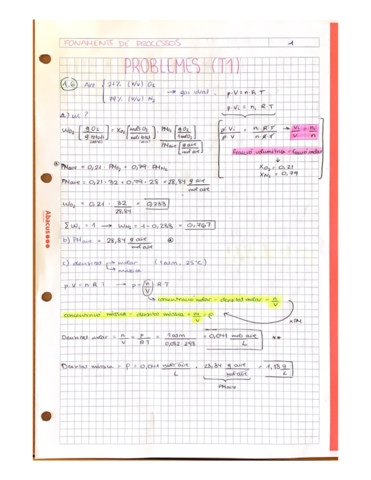 FONAMENTS DE PROCESSOS 1
PROBLEMES (T1)
1.6 Aire { 21% (v/v) O₂
79% (v/v) N₂ → gas ideal. p·V = n·R·T
p·Vi = ni·R·T
a) wi?
p·Vi / p·V = ni·R·T / n·R·T → Vi/V = ni/n
Fracció volumètrica = fracció molar
xO₂ = 0,21
xN₂ = 0,79
PMaire = 0,21·PMO₂ + 0,79·PMN₂
PMaire = 0,21·32 + 0,79·28 = 28,84 g aire / mol aire
wO₂ = 0,21 · 32 / 28,84 = 0,233
Σwi = 1 → wN₂ = 1 - 0,233 = 0,767
b) PMaire = 28,84 g aire / mol aire
c) densitat molar (1 atm, 25°C)
màssica
p·V = n·R·T → p = (n/V)·R·T
concentració molar = densitat molar = n/V
concentració màssica = densitat màssica = m/V = ρ
×PM
Densitat molar = n/V = p/RT = 1 atm / 0,082·298 = 0,041 mols aire / L **
Densitat màssica = ρ = 0,041 mols aire / L · 28,84 g aire / mol aire = 1,18 g / L
PMaire
Abacus